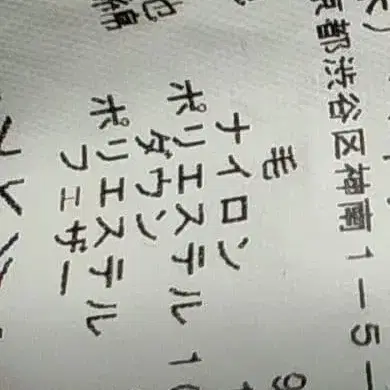 京都渋谷区神南1-5-
毛 9
ナイロン
ポリエステル 10
ダウン
ポリエステル
フェザー
綿